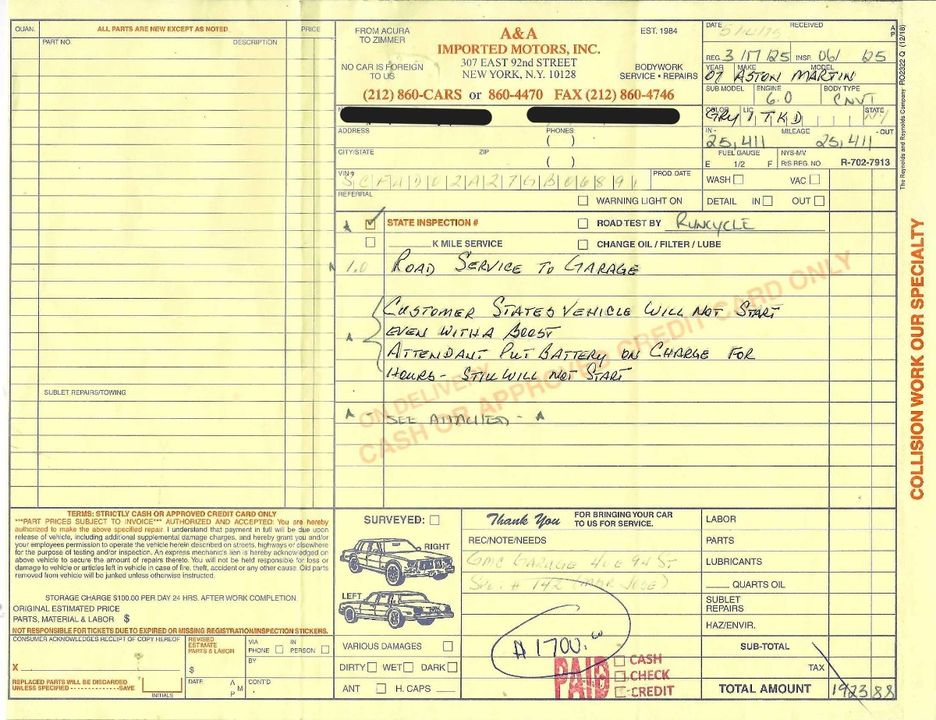 QUAN. ALL PARTS ARE NEW EXCEPT AS NOTED PRICE
PART NO. DESCRIPTION
FROM ACURA TO ZIMMER
NO CAR IS FOREIGN TO US
A&A
IMPORTED MOTORS, INC.
307 EAST 92nd STREET
NEW YORK, N.Y. 10128
EST. 1984
BODYWORK
SERVICE • REPAIRS
(212) 860-CARS or 860-4470 FAX (212) 860-4746
DATE RECEIVED A P
REG. 3/17/25 INSP. 06/25
YEAR MAKE MODEL
07 ASTON MARTIN
SUB MODEL ENGINE BODY TYPE
6.0 CNVT
COLOR LIC STATE
GRY 1 TKD NY
IN - MILEAGE - OUT
25,411 25,411
FUEL GAUGE NYS-MV
E 1/2 F R/S REG. NO R-702-7913
ADDRESS PHONES
( )
CITY/STATE ZIP
( )
VIN# PROD. DATE
SCFAD02A27GB06891
WASH VAC
REFERRAL
WARNING LIGHT ON
DETAIL IN OUT
A STATE INSPECTION #
ROAD TEST BY RUNCYCLE
K MILE SERVICE
CHANGE OIL / FILTER / LUBE
1.0 ROAD SERVICE TO GARAGE
CUSTOMER STATES VEHICLE WILL NOT START
EVEN WITH A BOOST
A ATTENDANT PUT BATTERY ON CHARGE FOR
HOURS - STILL WILL NOT START
A - SEE ATTACHED - A
ON DELIVERY
CASH OR APPROVED CREDIT CARD ONLY
SUBLET REPAIRS/TOWING
COLLISION WORK OUR SPECIALTY
The Reynolds and Reynolds Company PO2322 Q (12/18)
TERMS: STRICTLY CASH OR APPROVED CREDIT CARD ONLY
***PART PRICES SUBJECT TO INVOICE*** AUTHORIZED AND ACCEPTED: You are hereby
authorized to make the above specified repair. I understand that payment in full will be due upon
release of vehicle, including additional supplemental damage charges, and hereby grant you and/or
your employees permission to operate the vehicle herein described on streets, highways or elsewhere
for the purpose of testing and/or inspection. An express mechanics lien is hereby acknowledged on
above vehicle to secure the amount of repairs thereto. You will not be held responsible for loss or
damage to vehicle or articles left in vehicle in case of fire, theft, accident or any other cause. Old parts
removed from vehicle will be junked unless otherwise instructed.
STORAGE CHARGE $100.00 PER DAY 24 HRS. AFTER WORK COMPLETION.
ORIGINAL ESTIMATED PRICE
PARTS, MATERIAL & LABOR $
NOT RESPONSIBLE FOR TICKETS DUE TO EXPIRED OR MISSING REGISTRATION/INSPECTION STICKERS.
CONSUMER ACKNOWLEDGES RECEIPT OF COPY HEREOF
X
REPLACED PARTS WILL BE DISCARDED
UNLESS SPECIFIED SAVE
INITIALS
REVISED ESTIMATE PARTS & LABOR
$
DATE A M P
VIA PHONE IN PERSON
BY
CONT'D
SURVEYED:
RIGHT
LEFT
VARIOUS DAMAGES
DIRTY WET DARK
ANT H. CAPS
Thank You FOR BRINGING YOUR CAR TO US FOR SERVICE.
REC/NOTE/NEEDS
GMC GARAGE 40 E 94 ST
$1700.00
PAID
CASH
CHECK
CREDIT
LABOR
PARTS
LUBRICANTS
QUARTS OIL
SUBLET REPAIRS
HAZ/ENVIR.
SUB-TOTAL
TAX
TOTAL AMOUNT 1923 88